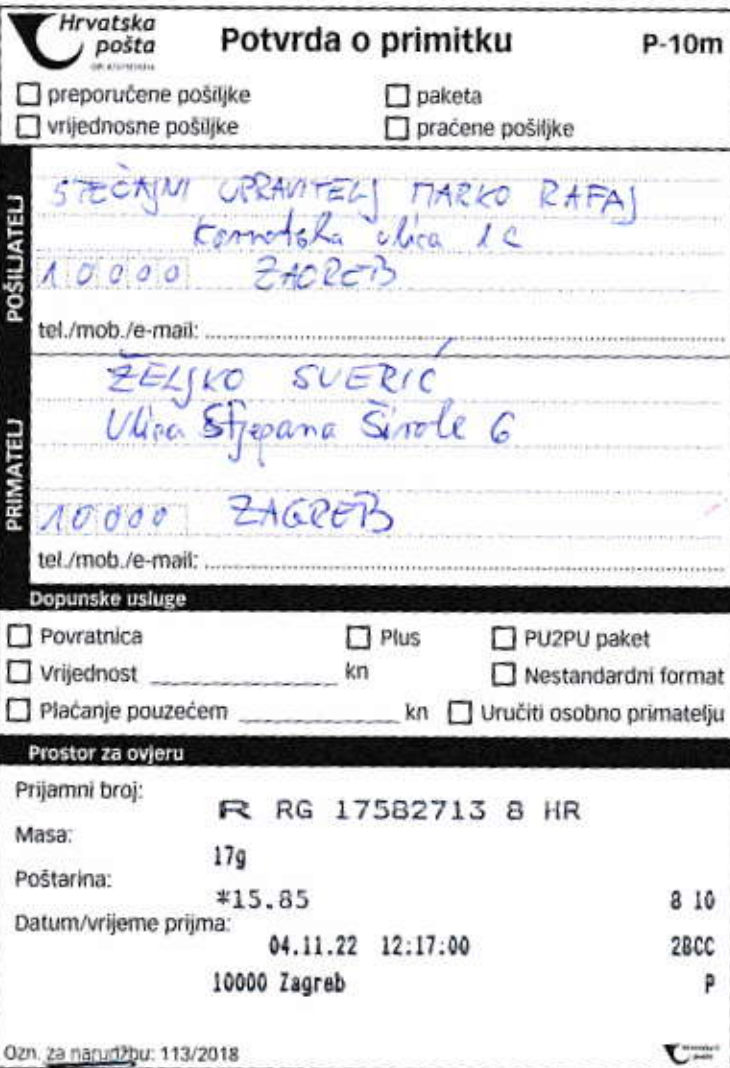 Hrvatska
pošta
Potvrda o primitku
P-10m
preporučene pošiljke
paketa
vrijednosne pošiljke
praćene pošiljke
POŠILJATELJ
STEČAJNI UPRAVITELJ MARKO RAFAJ
ulica 1C
10000 ZAGREB
tel./mob./e-mail:
PRIMATELJ
ŽELJKO SVERIĆ
Ulica Stjepana Širole 6
10000 ZAGREB
tel./mob./e-mail:
Dopunske usluge
Povratnica
Plus
PU2PU paket
Vrijednost kn
Nestandardni format
Plaćanje pouzećem kn
Uručiti osobno primatelju
Prostor za ovjeru
Prijamni broj:
R RG 17582713 8 HR
Masa:
17g
Poštarina:
*15.85 8 10
Datum/vrijeme prijma:
04.11.22 12:17:00 2BCC
10000 Zagreb P
Ozn. za narudžbu: 113/2018